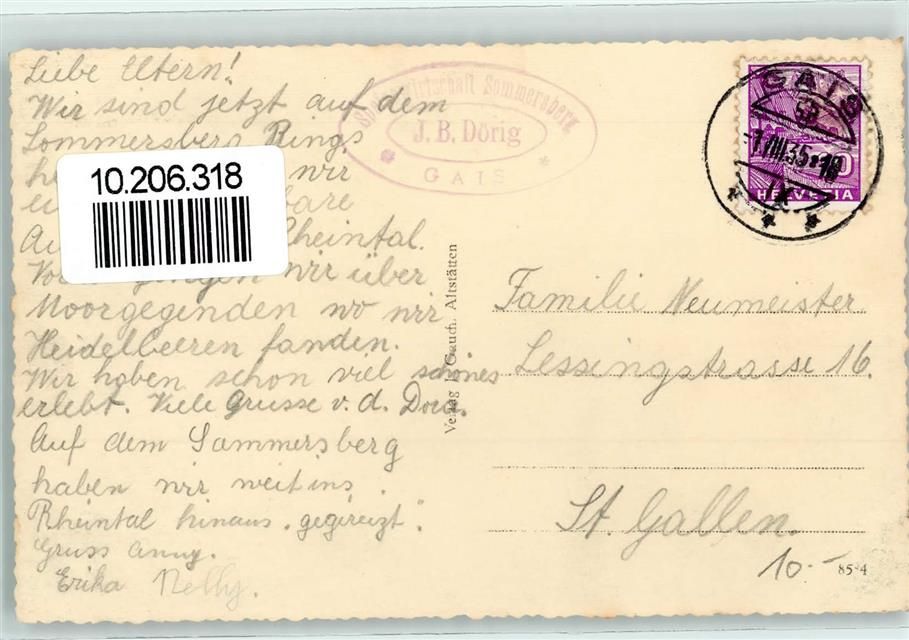 Liebe Eltern!
Wir sind jetzt auf dem
Sommersberg. Rings
wir
bare
Rheintal.
wir über
Moorgegenden wo wir
Heidelbeeren fanden.
Wir haben schon viel schönes
erlebt. Viele Grüsse v. d. Dora.
Auf dem Sommersberg
haben wir weit ins
Rheintal hinaus "gegireizt".
Gruss Anny.
Erika Nelly.
10.206.318
wirtschaft Sommersberg
J. B. Dörig
GAIS
Verlag Gauch. Altstätten
GAIS
HELVETIA
Familie Neumeister
Lessingstrasse 16.
St. Gallen.
10.-